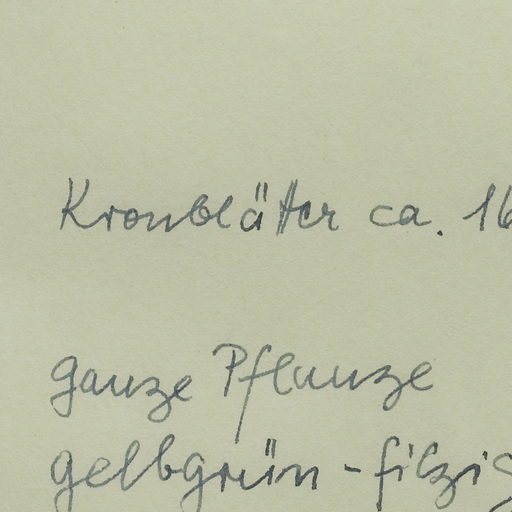 Kronblätter ca. 16
ganze Pflanze
gelbgrün-filzig